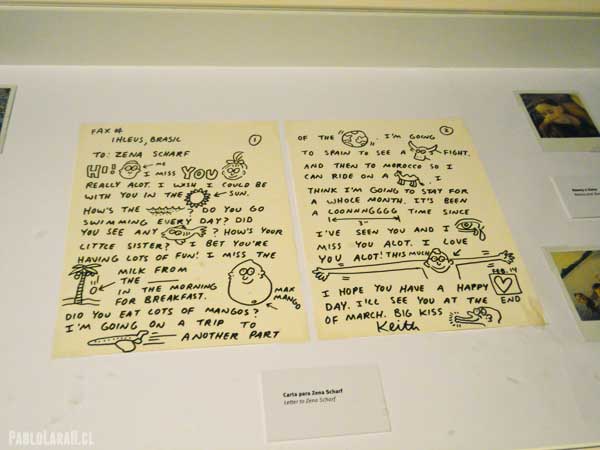 FAX #
1
IHLEUS, BRASIL
TO: ZENA SCHARF
HI! ME
I MISS YOU
REALLY ALOT. I WISH I COULD BE
WITH YOU IN THE SUN.
HOW'S THE ? DO YOU GO
SWIMMING EVERY DAY? DID
YOU SEE ANY ? HOW'S YOUR
LITTLE SISTER? I BET YOU'RE
HAVING LOTS OF FUN! I MISS THE
MILK FROM
THE
IN THE MORNING
FOR BREAKFAST.
MAX
MANGO
DID YOU EAT LOTS OF MANGOS?
I'M GOING ON A TRIP TO
ANOTHER PART
2
OF THE . I'M GOING
TO SPAIN TO SEE A FIGHT.
AND THEN TO MOROCCO SO I
CAN RIDE ON A . I
THINK I'M GOING TO STAY FOR
A WHOLE MONTH. IT'S BEEN
A LOONNNGGGG TIME SINCE
3"
I'VE SEEN YOU AND I
MISS YOU ALOT. I LOVE
YOU ALOT! THIS MUCH
FEB. 14
I HOPE YOU HAVE A HAPPY
DAY. I'LL SEE YOU AT THE END
OF MARCH. BIG KISS
Keith
Carta para Zena Scharf
Letter to Zena Scharf
PABLOLARAH.CL